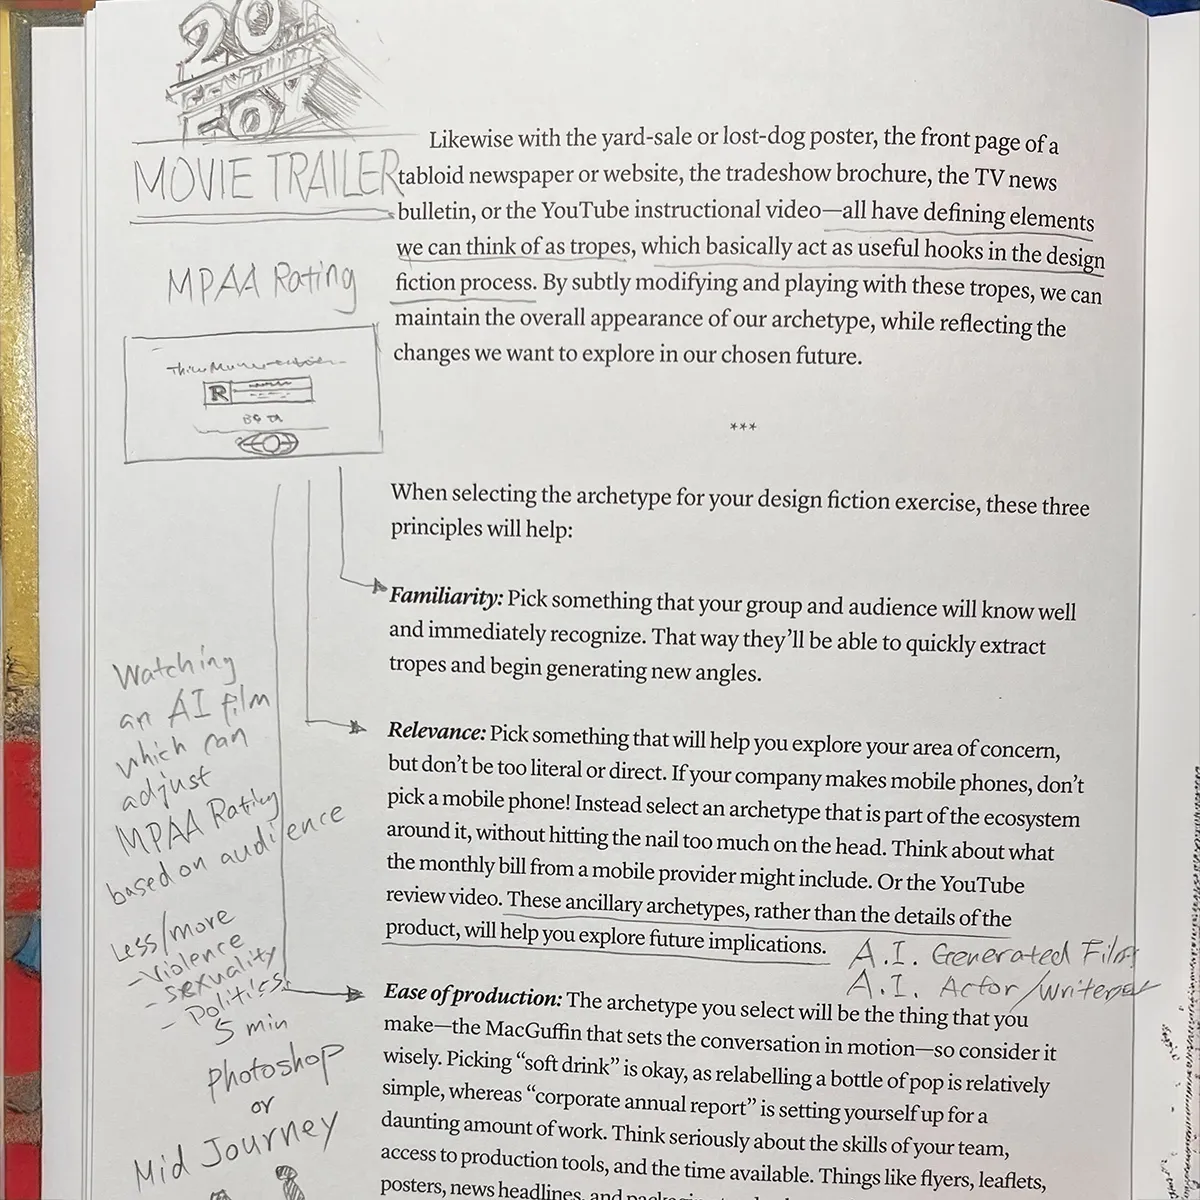 20
CENTURY
FOX
MOVIE TRAILER
MPAA Rating
R
Likewise with the yard-sale or lost-dog poster, the front page of a
tabloid newspaper or website, the tradeshow brochure, the TV news
bulletin, or the YouTube instructional video—all have defining elements
we can think of as tropes, which basically act as useful hooks in the design
fiction process. By subtly modifying and playing with these tropes, we can
maintain the overall appearance of our archetype, while reflecting the
changes we want to explore in our chosen future.
***
When selecting the archetype for your design fiction exercise, these three
principles will help:
Familiarity: Pick something that your group and audience will know well
and immediately recognize. That way they’ll be able to quickly extract
tropes and begin generating new angles.
Relevance: Pick something that will help you explore your area of concern,
but don’t be too literal or direct. If your company makes mobile phones, don’t
pick a mobile phone! Instead select an archetype that is part of the ecosystem
around it, without hitting the nail too much on the head. Think about what
the monthly bill from a mobile provider might include. Or the YouTube
review video. These ancillary archetypes, rather than the details of the
product, will help you explore future implications.
A.I. Generated Film
A.I. Actor/writer
Ease of production: The archetype you select will be the thing that you
make—the MacGuffin that sets the conversation in motion—so consider it
wisely. Picking “soft drink” is okay, as relabelling a bottle of pop is relatively
simple, whereas “corporate annual report” is setting yourself up for a
daunting amount of work. Think seriously about the skills of your team,
access to production tools, and the time available. Things like flyers, leaflets,
posters, news headlines, and
Watching
an AI film
which can
adjust
MPAA Rating
based on audience
Less/more
- Violence
- Sexuality
- Politics
5 min
Photoshop
or
Mid Journey